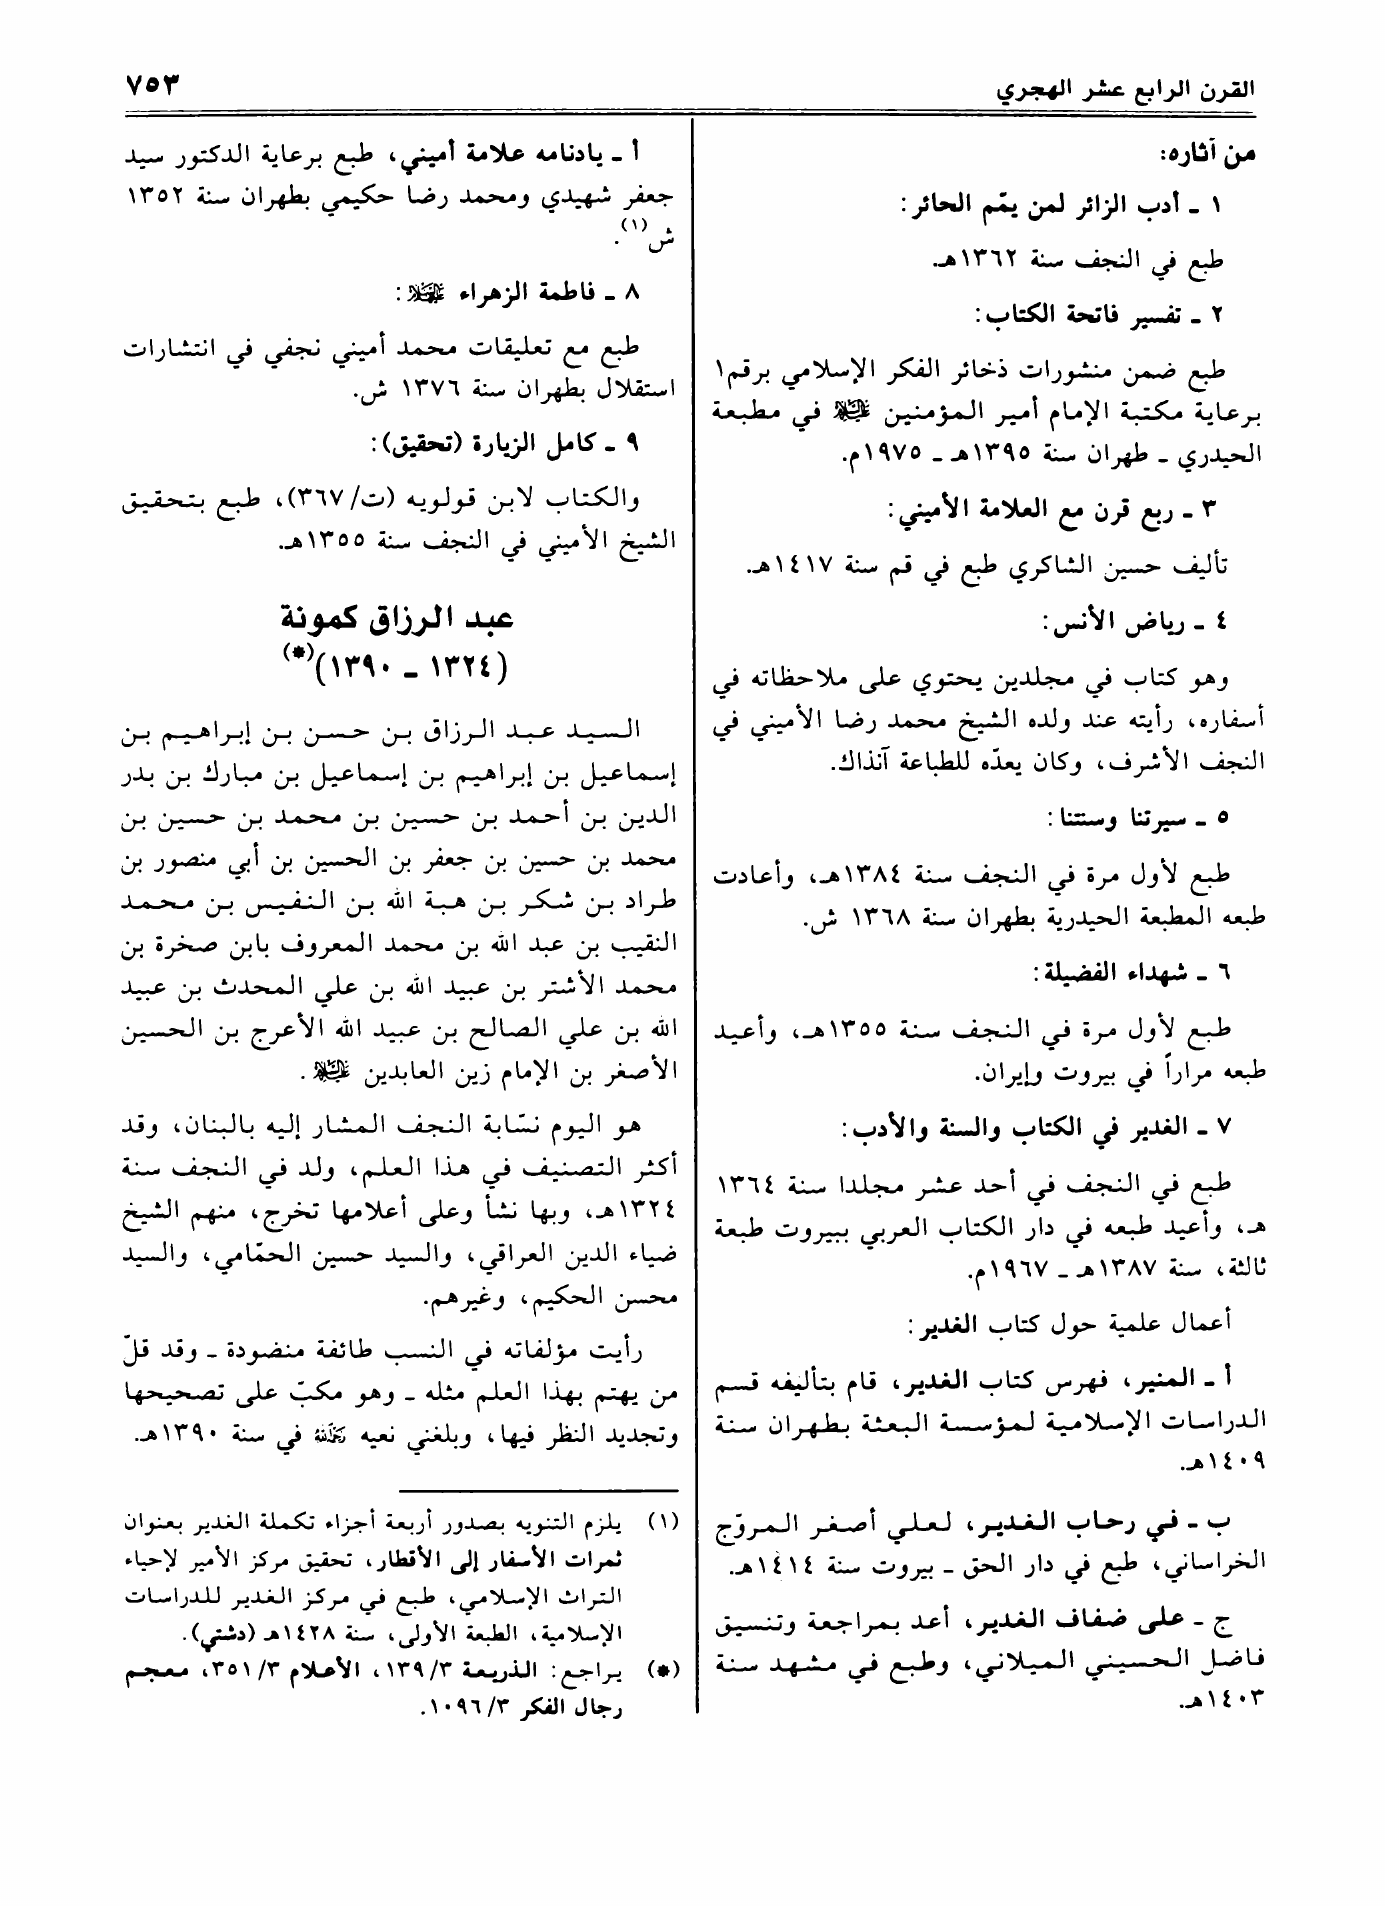 القرن الرابع عشر الهجري
٧٥٣
من آثاره:
١ ـ أدب الزائر لمن يمّم الحائر:
طبع في النجف سنة ١٣٦٢هـ.
٢ ـ تفسير فاتحة الكتاب:
طبع ضمن منشورات ذخائر الفكر الإسلامي برقم١
برعاية مكتبة الإمام أمير المؤمنين عليه السلام في مطبعة
الحيدري ـ طهران سنة ١٣٩٥هـ ـ ١٩٧٥م.
٣ ـ ربع قرن مع العلامة الأميني:
تأليف حسين الشاكري طبع في قم سنة ١٤١٧هـ.
٤ ـ رياض الأنس:
وهو كتاب في مجلدين يحتوي على ملاحظاته في
أسفاره، رأيته عند ولده الشيخ محمد رضا الأميني في
النجف الأشرف، وكان يعدّه للطباعة آنذاك.
٥ ـ سيرتنا وسنتنا:
طبع لأول مرة في النجف سنة ١٣٨٤هـ، وأعادت
طبعه المطبعة الحيدرية بطهران سنة ١٣٦٨ ش.
٦ ـ شهداء الفضيلة:
طبع لأول مرة في النجف سنة ١٣٥٥هـ، وأعيد
طبعه مراراً في بيروت وإيران.
٧ ـ الغدير في الكتاب والسنة والأدب:
طبع في النجف في أحد عشر مجلدا سنة ١٣٦٤
هـ، وأعيد طبعه في دار الكتاب العربي ببيروت طبعة
ثالثة، سنة ١٣٨٧هـ ـ ١٩٦٧م.
أعمال علمية حول كتاب الغدير:
أ ـ المنير، فهرس كتاب الغدير، قام بتأليفه قسم
الدراسات الإسلامية لمؤسسة البعثة بطهران سنة
١٤٠٩هـ.
ب ـ في رحاب الغدير، لعلي أصغر المروّج
الخراساني، طبع في دار الحق ـ بيروت سنة ١٤١٤هـ.
ج ـ على ضفاف الغدير، أعد بمراجعة وتنسيق
فاضل الحسيني الميلاني، وطبع في مشهد سنة
١٤٠٣هـ.
أ ـ يادنامه علامة أميني، طبع برعاية الدكتور سيد
جعفر شهيدي ومحمد رضا حكيمي بطهران سنة ١٣٥٢
ش(١).
٨ ـ فاطمة الزهراء عليها السلام:
طبع مع تعليقات محمد أميني نجفي في انتشارات
استقلال بطهران سنة ١٣٧٦ ش.
٩ ـ كامل الزيارة (تحقيق):
والكتاب لابن قولويه (ت/٣٦٧)، طبع بتحقيق
الشيخ الأميني في النجف سنة ١٣٥٥هـ.
عبد الرزاق كمونة
(١٣٢٤ ـ ١٣٩٠)(*)
السيد عبد الرزاق بن حسن بن إبراهيم بن
إسماعيل بن إبراهيم بن إسماعيل بن مبارك بن بدر
الدين بن أحمد بن حسين بن محمد بن حسين بن
محمد بن حسين بن جعفر بن الحسين بن أبي منصور بن
طراد بن شكر بن هبة الله بن النفيس بن محمد
النقيب بن عبد الله بن محمد المعروف بابن صخرة بن
محمد الأشتر بن عبيد الله بن علي المحدث بن عبيد
الله بن علي الصالح بن عبيد الله الأعرج بن الحسين
الأصغر بن الإمام زين العابدين عليه السلام.
هو اليوم نسّابة النجف المشار إليه بالبنان، وقد
أكثر التصنيف في هذا العلم، ولد في النجف سنة
١٣٢٤هـ، وبها نشأ وعلى أعلامها تخرج، منهم الشيخ
ضياء الدين العراقي، والسيد حسين الحمّامي، والسيد
محسن الحكيم، وغيرهم.
رأيت مؤلفاته في النسب طائفة منضودة ـ وقد قلّ
من يهتم بهذا العلم مثله ـ وهو مكبّ على تصحيحها
وتجديد النظر فيها، وبلغني نعيه رحمه الله في سنة ١٣٩٠هـ.
(١) يلزم التنويه بصدور أربعة أجزاء تكملة الغدير بعنوان
ثمرات الأسفار إلى الأقطار، تحقيق مركز الأمير لإحياء
التراث الإسلامي، طبع في مركز الغدير للدراسات
الإسلامية، الطبعة الأولى، سنة ١٤٢٨هـ (دشتي).
(*) يراجع: الذريعة ١٣٩/٣، الأعلام ٣٥١/٣، معجم
رجال الفكر ١٠٩٦/٣.